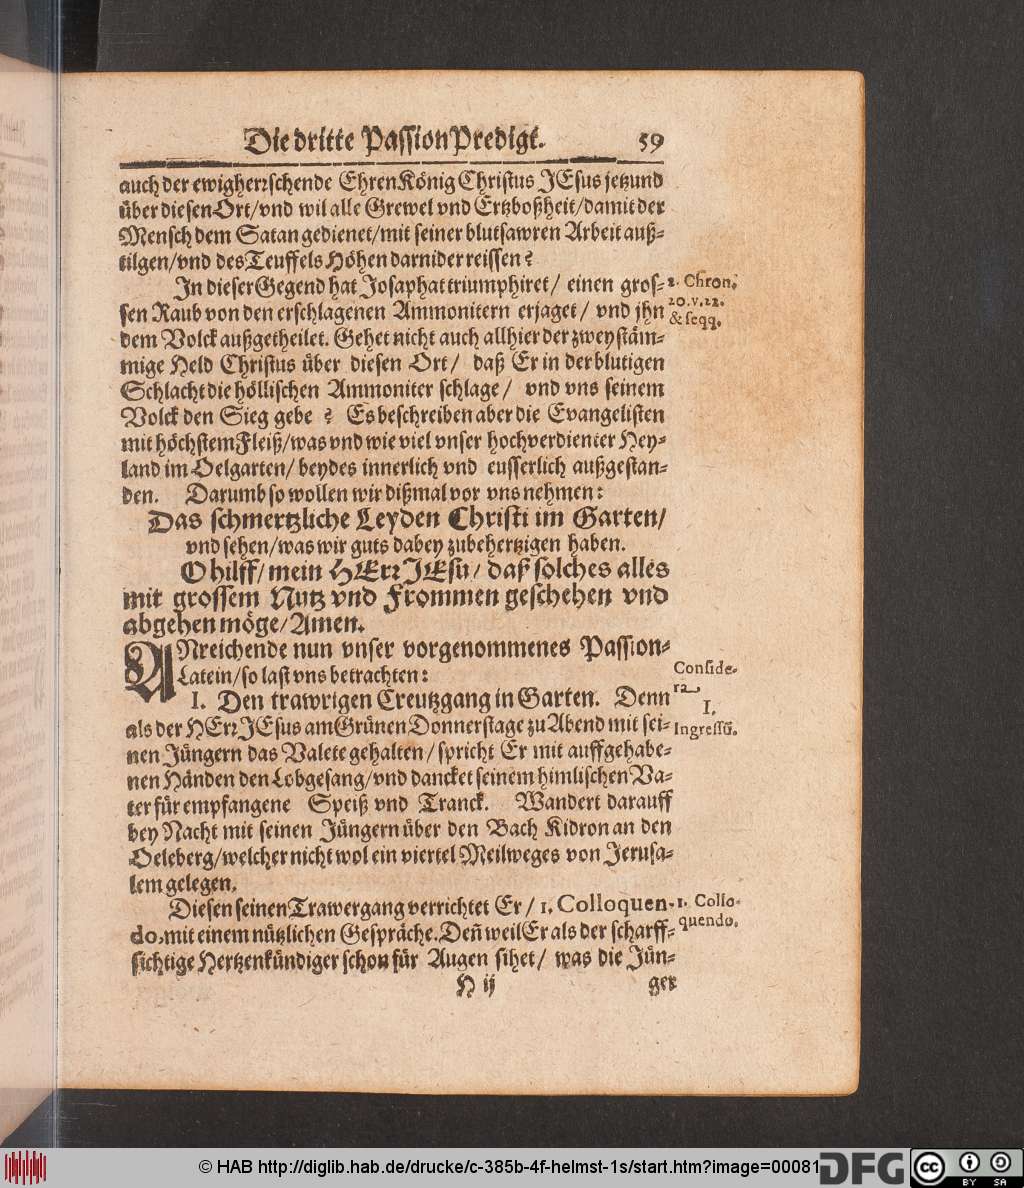 Die dritte PassionPredigt. 59
auch der ewigherrschende EhrenKönig Christus JEsus jetzund
über diesen Ort/vnd wil alle Grewel vnd Ertzboßheit/damit der
Mensch dem Satan gedienet/mit seiner blutsawren Arbeit auß-
tilgen/vnd des Teuffels Höhen darnider reissen?
In dieser Gegend hat Josaphat triumphiret/ einen gros-
2. Chron.
20.v.22.
& seqq.
sen Raub von den erschlagenen Ammonitern erjaget/ vnd jhn
dem Volck außgetheilet. Gehet nicht auch allhier der zweystäm-
mige Held Christus über diesen Ort/ daß Er in der blutigen
Schlacht die höllischen Ammoniter schlage/ vnd vns seinem
Volck den Sieg gebe? Es beschreiben aber die Evangelisten
mit höchstem Fleiß/was vnd wie viel vnser hochverdienter Hey-
land im Oelgarten/ beydes innerlich vnd eusserlich außgestan-
den. Darumb so wollen wir dißmal vor vns nehmen:
Das schmertzliche Leyden Christi im Garten/
vnd sehen/was wir guts dabey zubehertzigen haben.
O hilff/mein HErr JEsu/ daß solches alles
mit grossem Nutz vnd Frommen geschehen vnd
abgehen möge/Amen.
ANreichende nun vnser vorgenommenes Passion-
Latein/so last vns betrachten:
Conside-
ra
I.
Ingressū.
I. Den trawrigen Creutzgang in Garten. Denn
als der HErr JEsus am Grünen Donnerstage zu Abend mit sei-
nen Jüngern das Valete gehalten/spricht Er mit auffgehabe-
nen Händen den Lobgesang/vnd dancket seinem himlischen Va-
ter für empfangene Speiß vnd Tranck. Wandert darauff
bey Nacht mit seinen Jüngern über den Bach Kidron an den
Oeleberg/welcher nicht wol ein viertel Meilweges von Jerusa-
lem gelegen.
Diesen seinen Trawergang verrichtet Er/ 1. Colloquen-
1. Collo-
quendo.
do, mit einem nützlichen Gespräche. Deñ weil Er als der scharff-
sichtige Hertzenkündiger schon für Augen sihet/ was die Jün-
H ij ger
© HAB http://diglib.hab.de/drucke/c-385b-4f-helmst-1s/start.htm?image=00081
DFG
cc BY SA